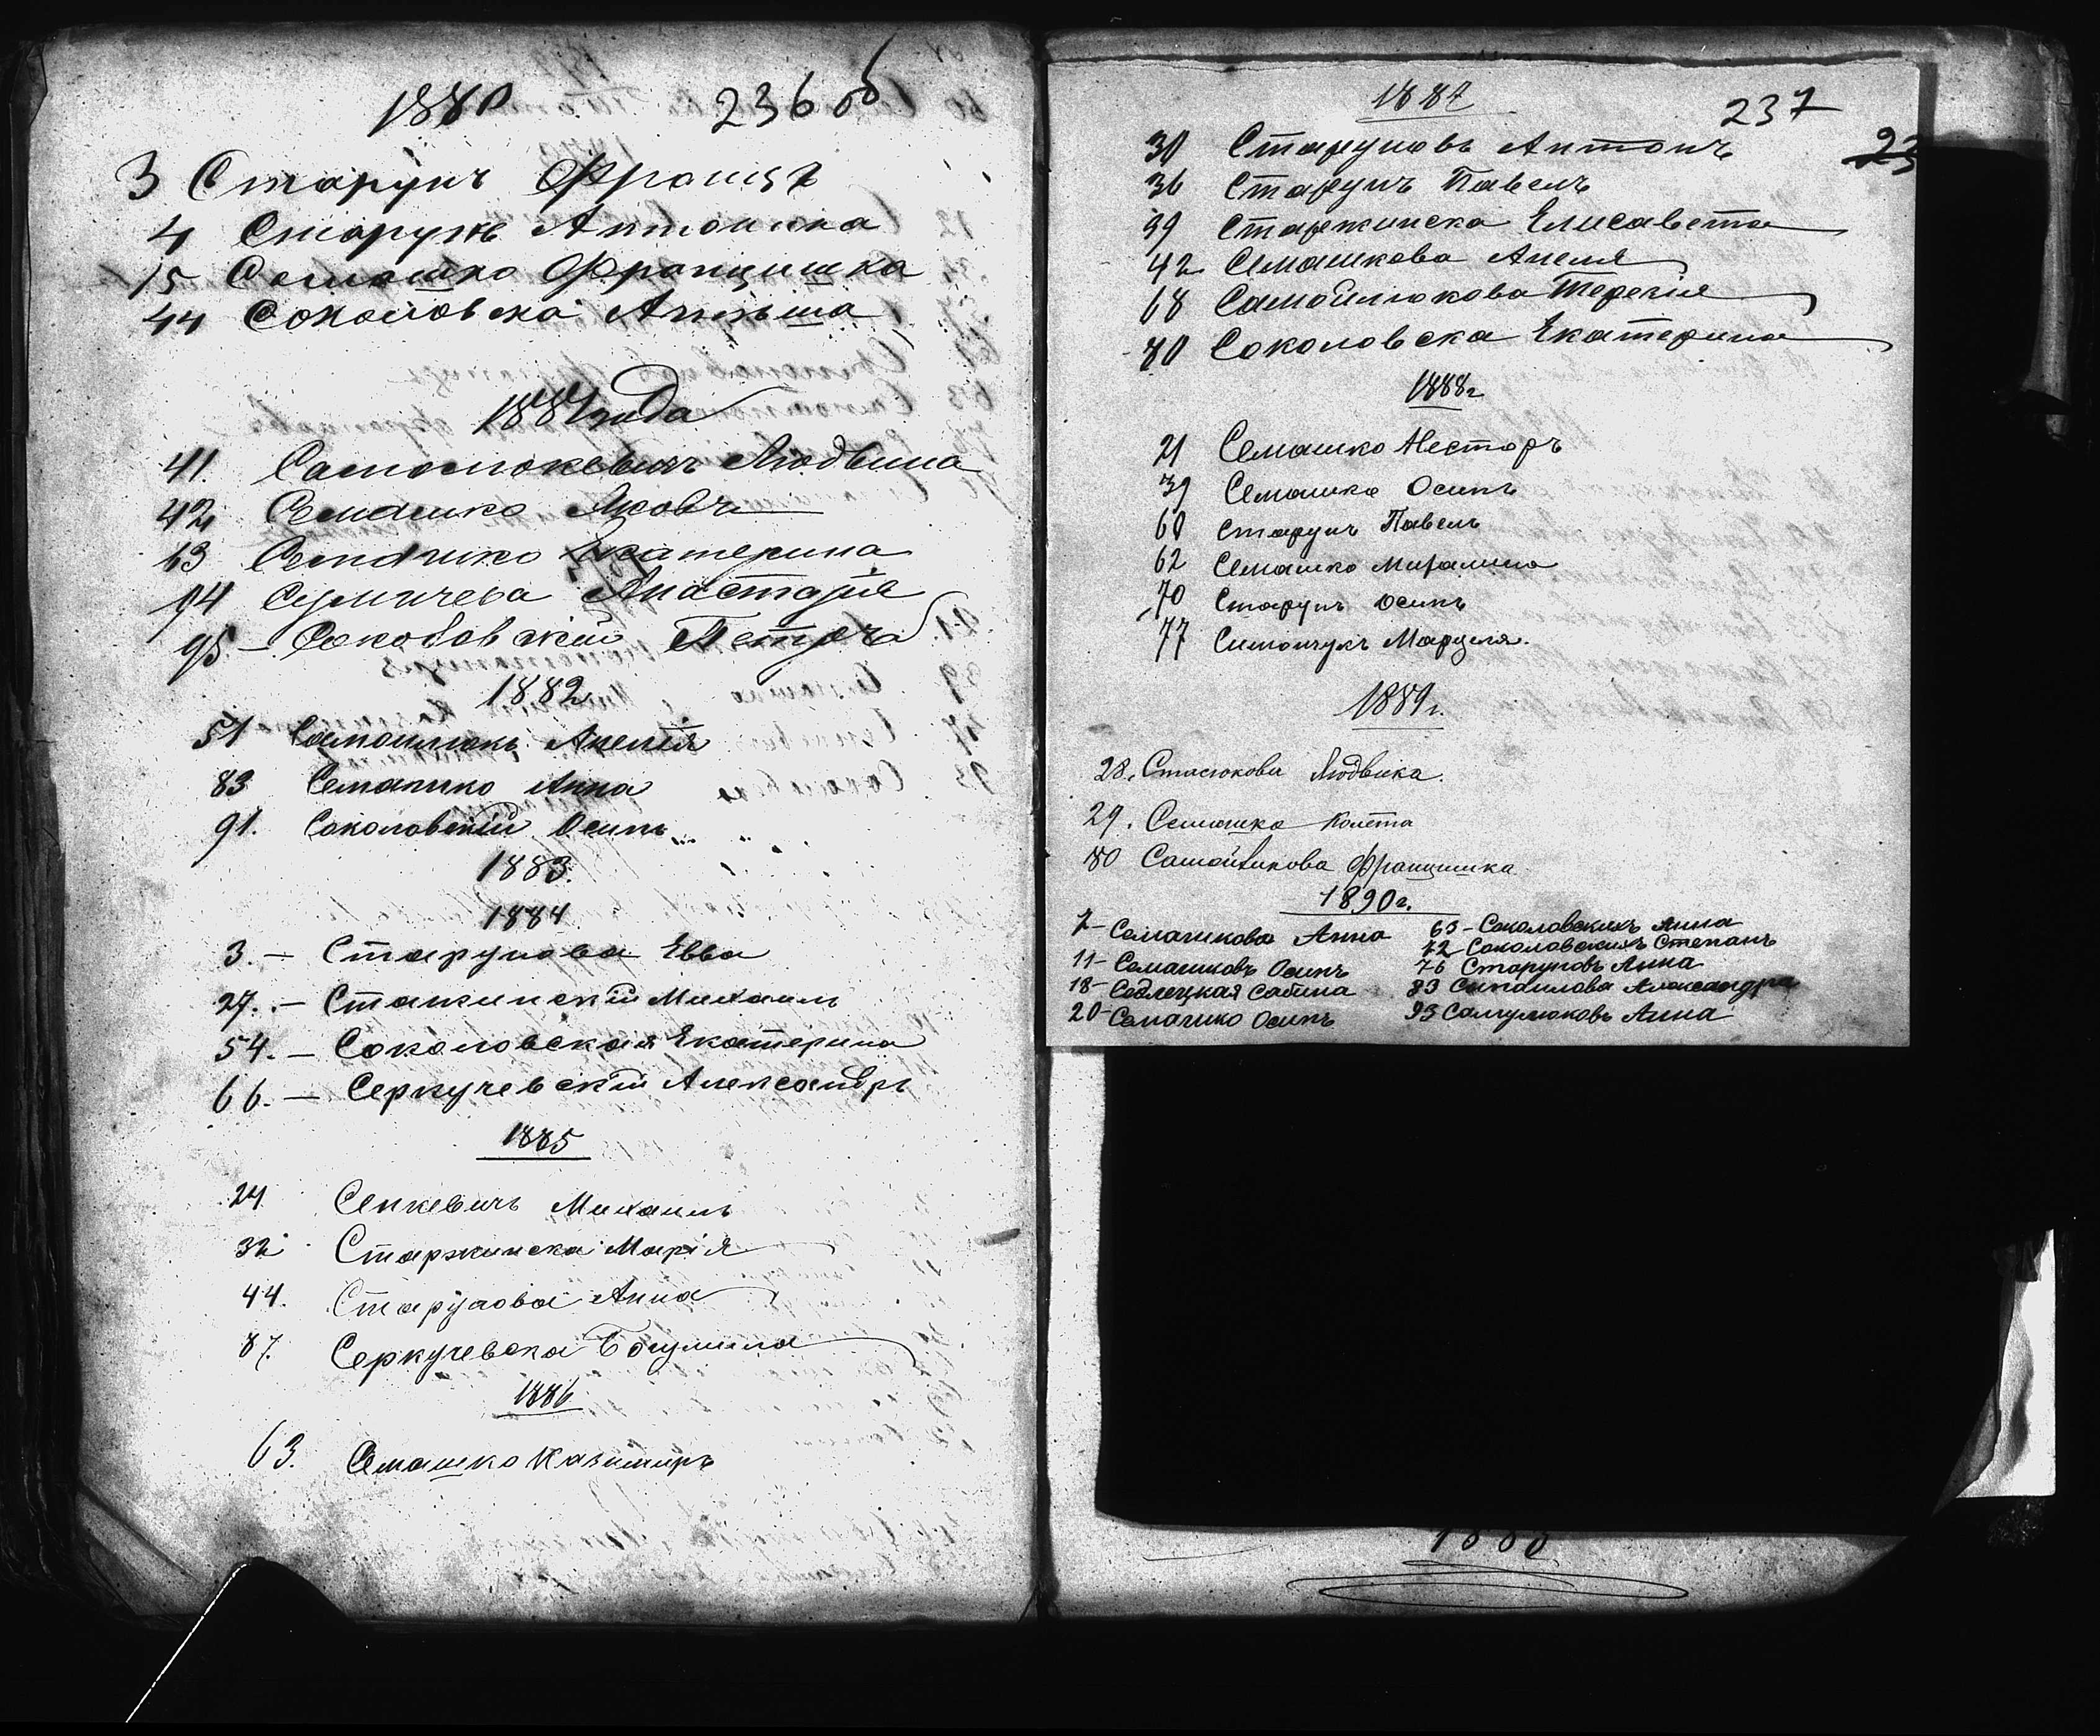 1880 236 об
3 Старунъ Францъ
4 Старунъ Антонина
15 Семашко Францишка
44 Соколовска Анѣльша
1881 года
41. Самолюкевичъ Людвина
42 Семашко Яковъ
63 Семашко Екатерина
94 Сумичева Анастазіе
95 – Соколовскій Петръ
1882
51 Самоилюкъ Анелія
83 Семашко Анна
91. Соколовскій Осипъ
1883.
1884
3. – Старунова Евва
27. – Сташинскій Михаилъ
54. – Соколовская Екатерина
66. – Серкучевскій Александръ
1885
24 Сенкевичъ Михаилъ
32 Старжинска Марія
44. Старунова Анна
87. Серкучевска Богумила
1886
63. Семашко Казимиръ
1887 237
30 Старуновъ Антонъ
36 Старунъ Павелъ
39 Старжинска Елисавета
42 Семашкова Анеля
68 Самоилюкова Терезія
80 Соколовска Екатерина
1888г
21 Семашко Несторъ
39 Семашко Осипъ
60 Старунъ Павелъ
62 Семашко
70 Старунъ Осипъ
77 Симончукъ Марцеля.
1889г.
28. Стасюкова Людвика.
29. Семашко Колета
80 Самойликова Францишка
1890г.
7– Семашкова Анна 63– Соколовскихъ Анна
11– Семашковъ Осипъ 72– Соколовскихъ Степанъ
18– Седлецкая Сабина 76 Старуновъ Анна
20– Семашко Осипъ 83 Александра
93 Самулюковъ Анна